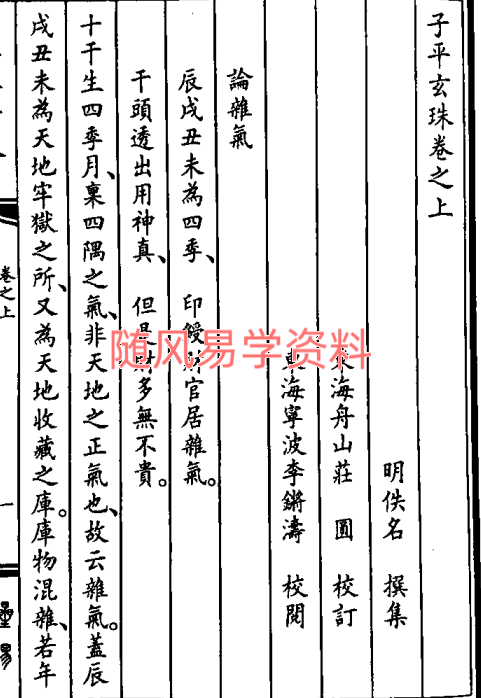 子平玄珠卷之上
明佚名 撰集
東海舟山莊 圓 校訂
東海寧波李鏘濤 校閱
論雜氣
辰戌丑未為四季、 印綬財官居雜氣。
干頭透出用神真、 但是財多無不貴。
十干生四季月、稟四隅之氣、非天地之正氣也、故云雜氣。蓋辰
戌丑未為天地牢獄之所、又為天地收藏之庫。庫物混雜、若年
卷之上
一
随风易学资料